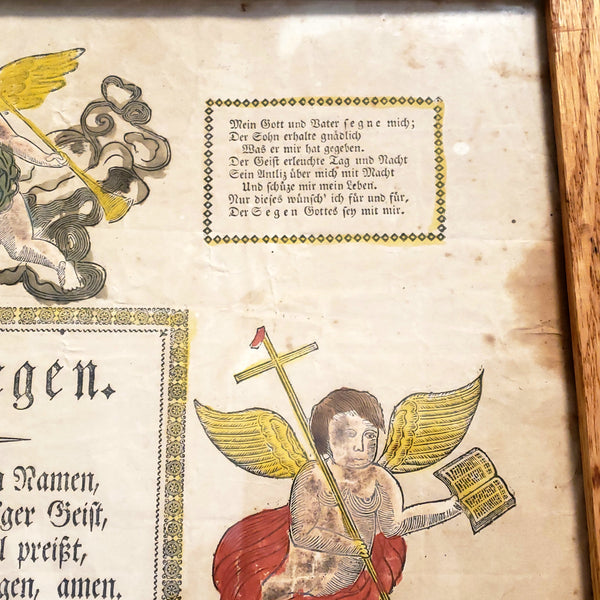 Mein Gott und Vater segne mich;
Der Sohn erhalte gnädlich
Was er mir hat gegeben.
Der Geist erleuchte Tag und Nacht
Sein Antliz über mich mit Macht
Und schüze mir mein Leben.
Nur dieses wünsch' ich für und für,
Der Segen Gottes sey mit mir.
egen.
Namen,
ger Geist,
preißt,
gen, amen.